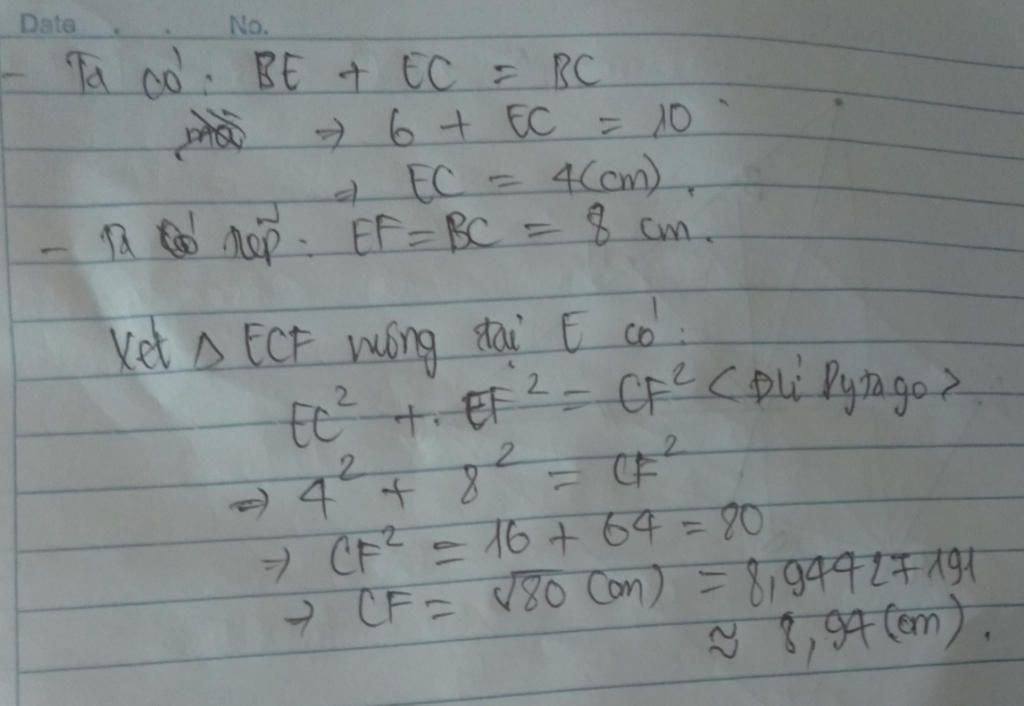 Date . . No.
- Ta có: BE + EC = BC
⇒ 6 + EC = 10
⇒ EC = 4(cm).
- Ta có : EF = BC = 8 cm.
Xét Δ ECF vuông tại E có:
EC² + EF² = CF² < Đlí Pytago >
⇒ 4² + 8² = CF²
⇒ CF² = 16 + 64 = 80
⇒ CF = √80 (cm) = 8,94427191
≈ 8,94 (cm).